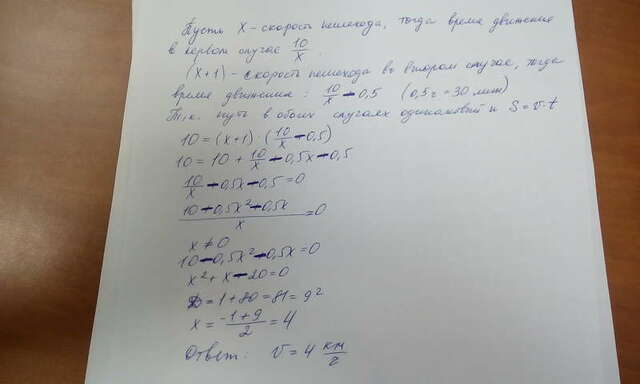 Пусть X - скорость пешехода, тогда время движения
в первом случае 10/x.
(x+1) - скорость пешехода во втором случае, тогда
время движения: 10/x - 0,5 (0,5ч = 30 мин)
Т.к. путь в обоих случаях одинаковый и S = v·t
10 = (x+1)·(10/x - 0,5)
10 = 10 + 10/x - 0,5x - 0,5
10/x - 0,5x - 0,5 = 0
(10 - 0,5x² - 0,5x)/x = 0
x ≠ 0
10 - 0,5x² - 0,5x = 0
x² + x - 20 = 0
D = 1 + 80 = 81 = 9²
x = (-1+9)/2 = 4
Ответ: v = 4 км/ч